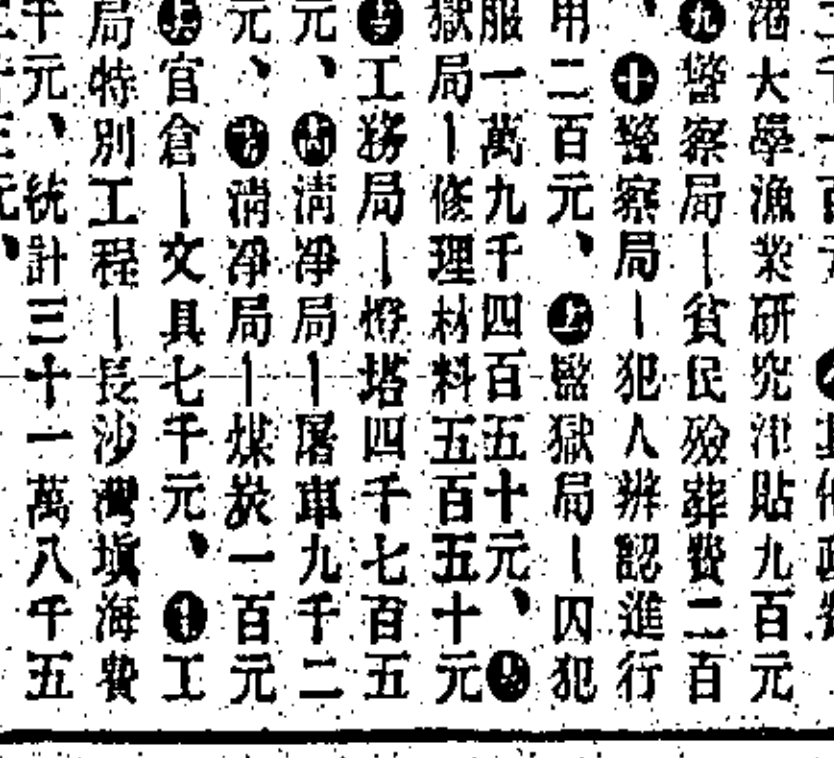 港大學漁業研究津貼九百元
九警察局｜貧民殮葬費二百
、十警察局｜犯人辨認進行
用二百元、十一監獄局｜囚犯
服一萬九千四百五十元、
獄局｜修理材料五百五十元
十三工務局｜燈塔四千七百五
元、十四清凈局｜屠車九千二
元、十五清凈局｜煤炭一百元
十六官倉｜文具七千元、十七工
局特別工程｜長沙灣塡海費
千元、統計三十一萬八千五